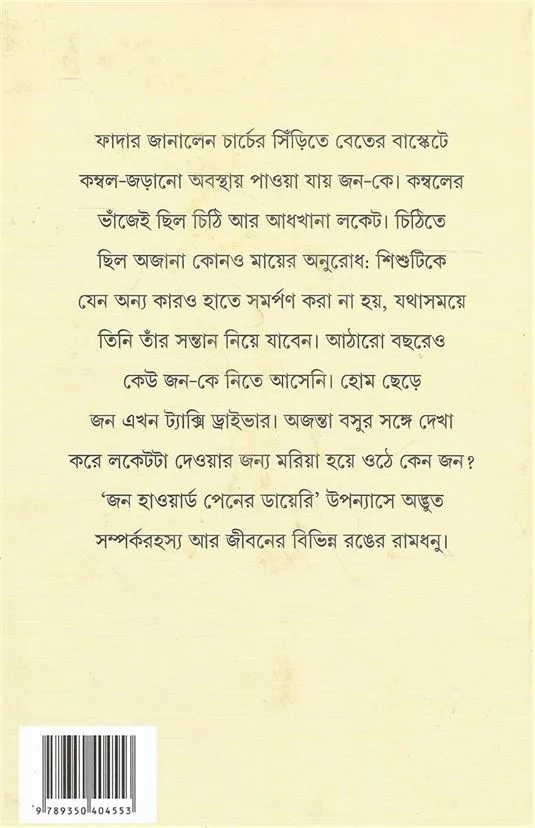 ফাদার জানালেন চার্চের সিঁড়িতে বেতের বাস্কেটে
কম্বল-জড়ানো অবস্থায় পাওয়া যায় জন-কে। কম্বলের
ভাঁজেই ছিল চিঠি আর আধখানা লকেট। চিঠিতে
ছিল অজানা কোনও মায়ের অনুরোধ: শিশুটিকে
যেন অন্য কারও হাতে সমর্পণ করা না হয়, যথাসময়ে
তিনি তাঁর সন্তান নিয়ে যাবেন। আঠারো বছরেও
কেউ জন-কে নিতে আসেনি। হোম ছেড়ে
জন এখন ট্যাক্সি ড্রাইভার। অজন্তা বসুর সঙ্গে দেখা
করে লকেটটা দেওয়ার জন্য মরিয়া হয়ে ওঠে কেন জন?
‘জন হাওয়ার্ড পেনের ডায়েরি’ উপন্যাসে অদ্ভুত
সম্পর্করহস্য আর জীবনের বিভিন্ন রঙের রামধনু।
9 789350 404553